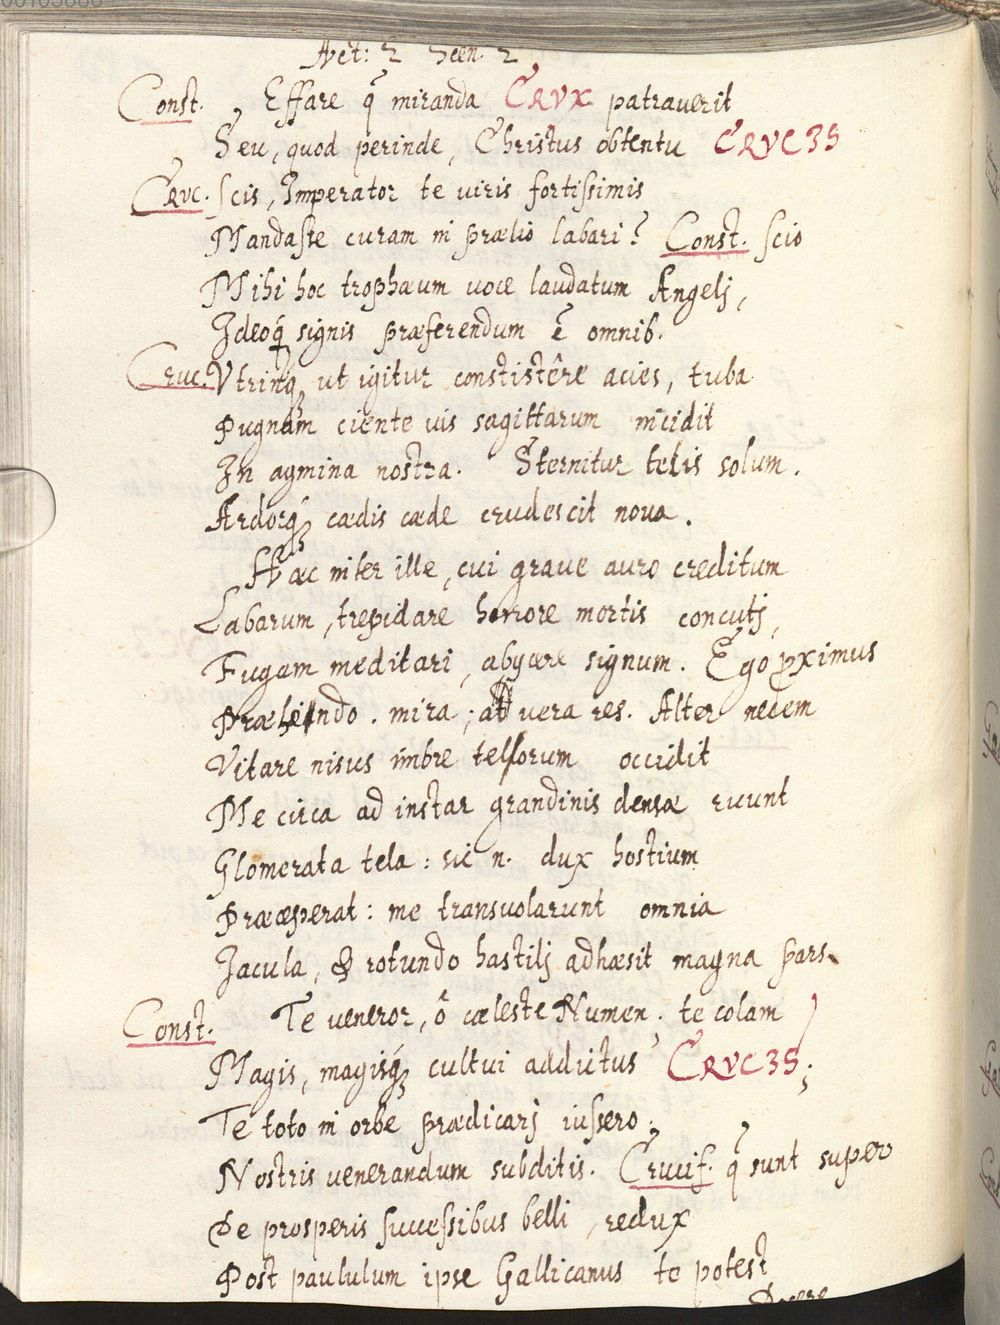 Act: 2 Scen. 2
Const. Effare q̃ miranda CRVX patraverit
Seu, quod perinde, Christus obtentu CRVCIS
Cruc. scis, Imperator te viris fortissimis
Mandaste curam in prælio labari? Const. scio
Mihi hoc trophæum voce laudatum Angelj,
Ideoq́ signis præferendum ẽ omnib.
Cruc. Vtrinq́ ut igitur constistêre acies, tuba
Pugnam ciente vis sagittarum incidit
In agmina nostra. Sternitur telis solum.
Ardorq́ cædis cæde crudescit nova.
Hæc inter ille, cui grave auro creditum
Labarum, trepidare horrore mortis concutj,
Fugam meditari, abycere signum. Ego pximus
Præhendo. mira; at vera res. Alter necem
Vitare nisus imbre telorum occidit
Me circa ad instar grandinis densæ ruunt
Glomerata tela: sic n. dux hostium
Præceperat: me transvolarunt omnia
Jacula, & rotundo hastilj adhæsit magna pars.
Const. Te veneror, ô cæleste Numen. te colam
Magis, magisq́ cultui addictus CRVCIS;
Te toto in orbe prædicarj iussero.
Nostris venerandum subditis. Crucif. q̃ sunt super
De prosperis successibus belli, redux
Post paululum ipse Gallicanus te potest
Docere